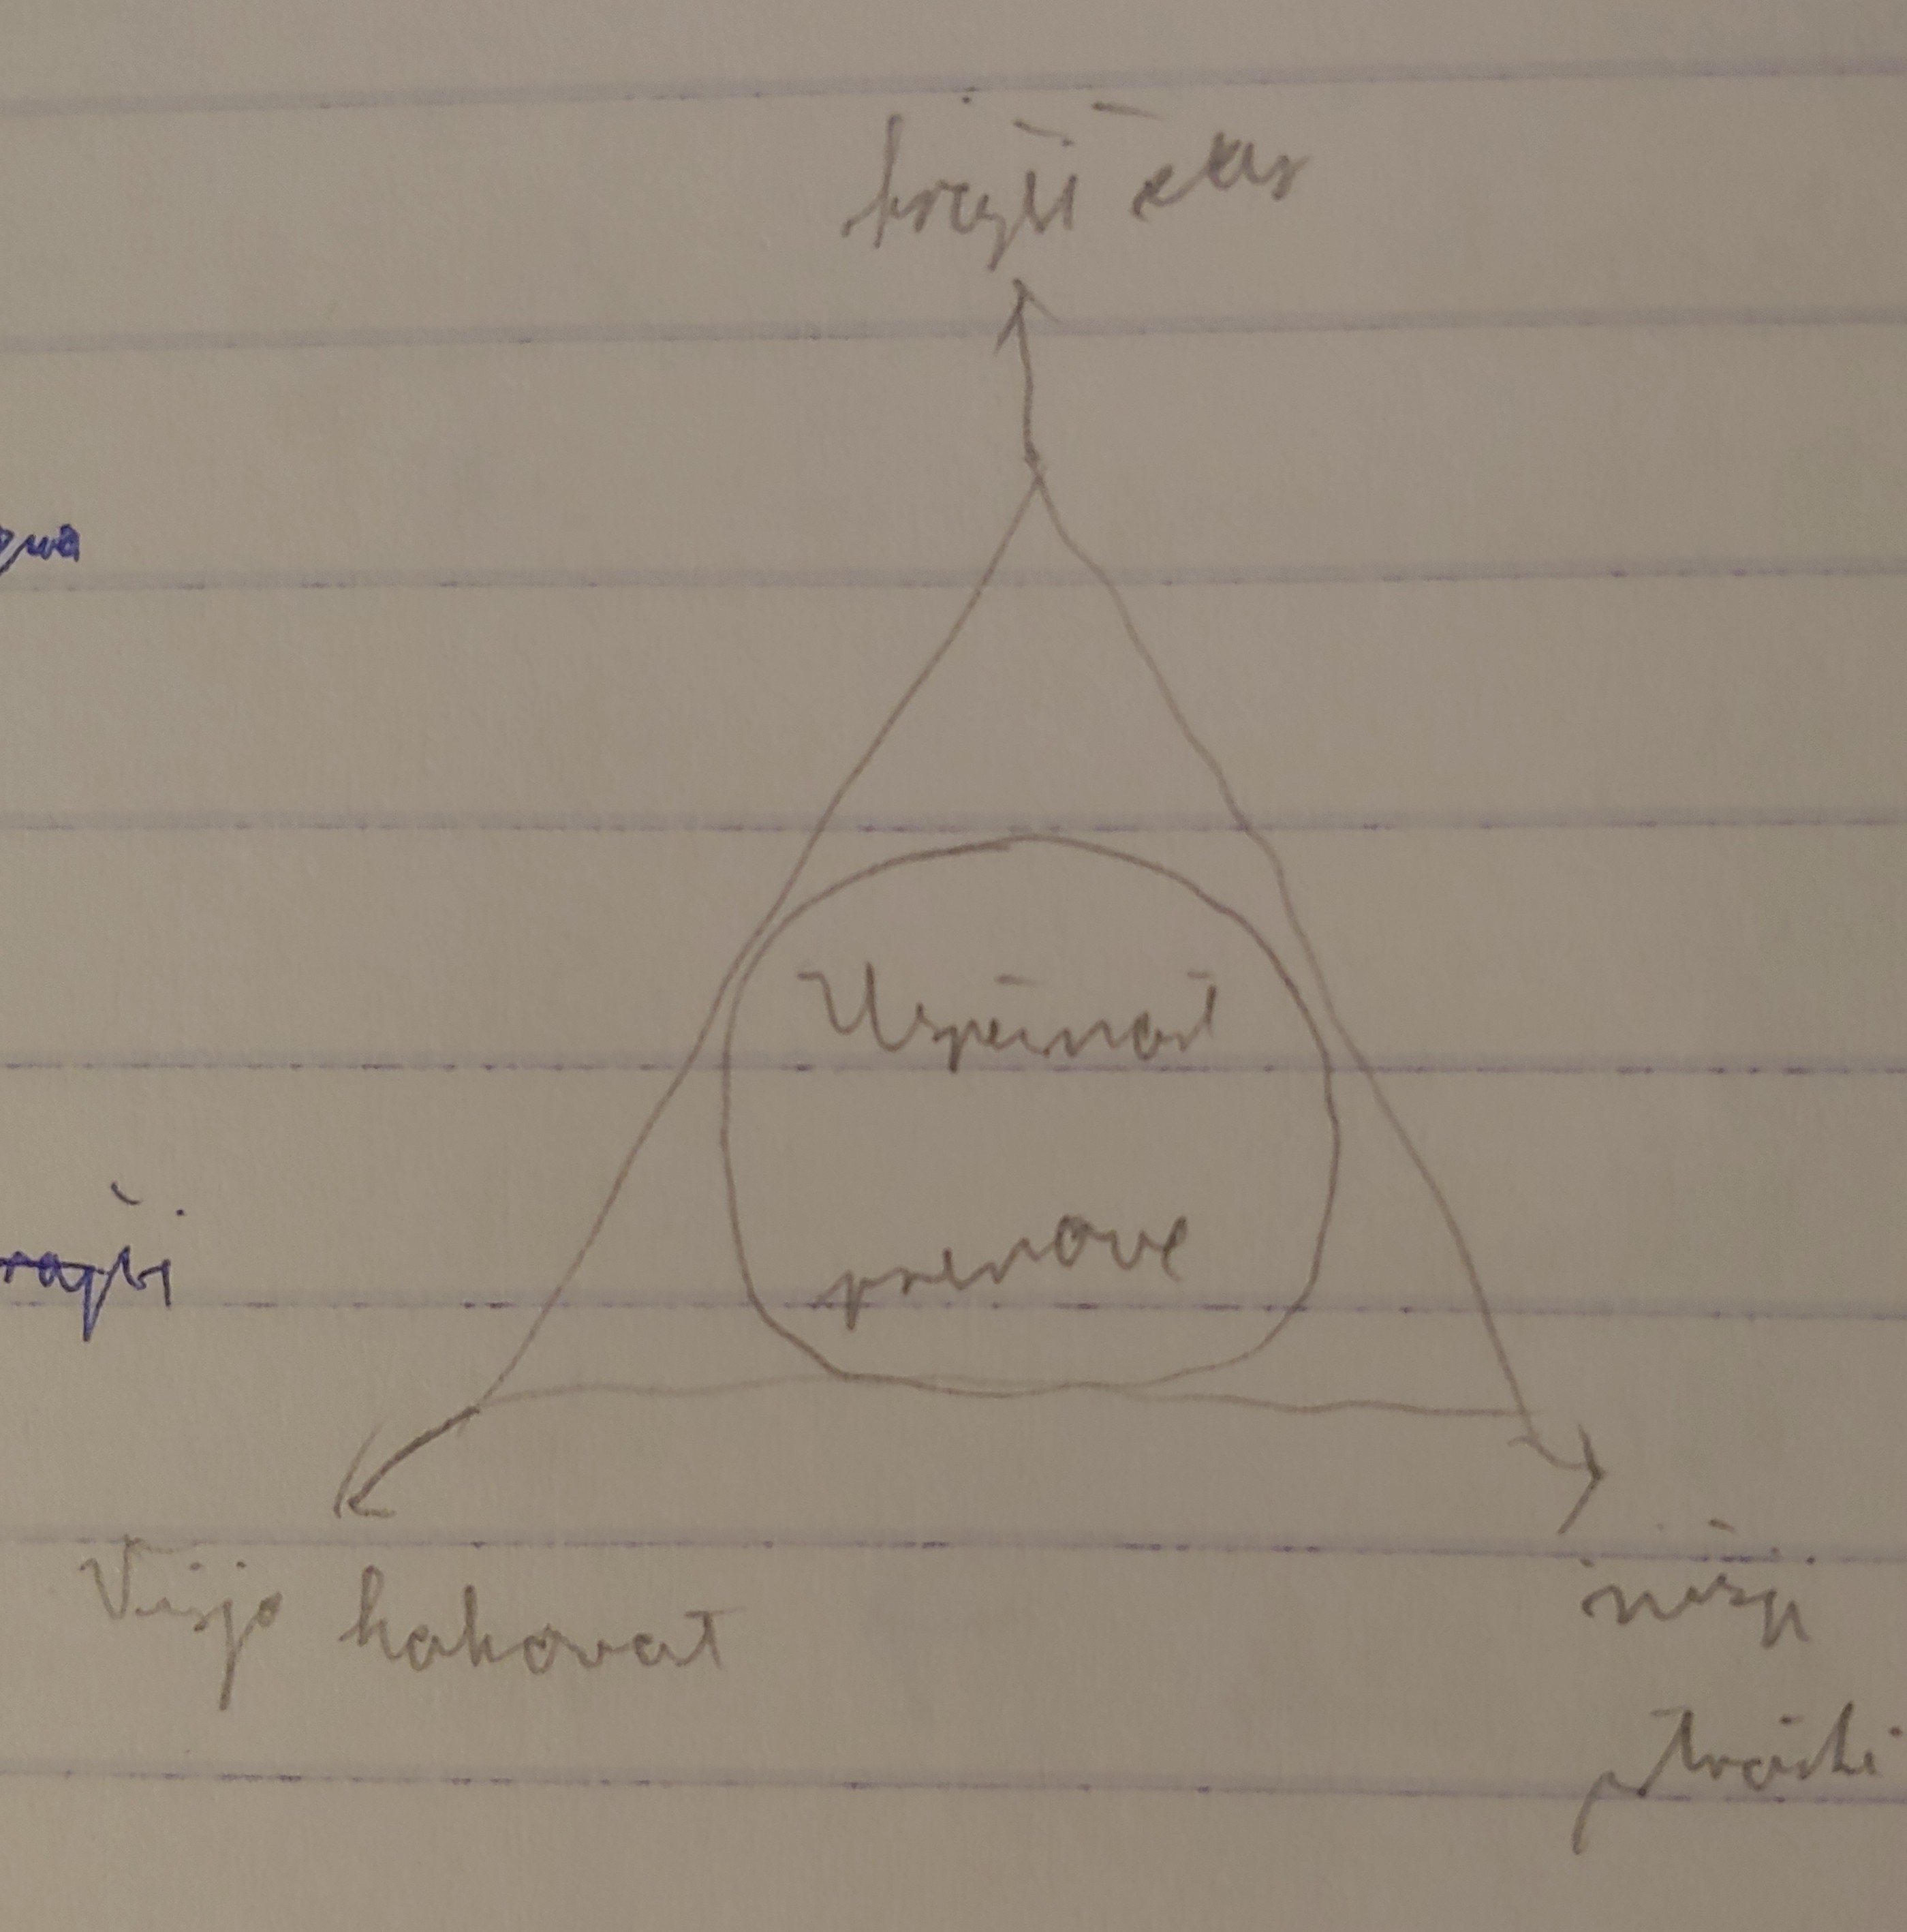 krajši čas
Uspešnost
prenove
Višja kakovat
nižji
stroški